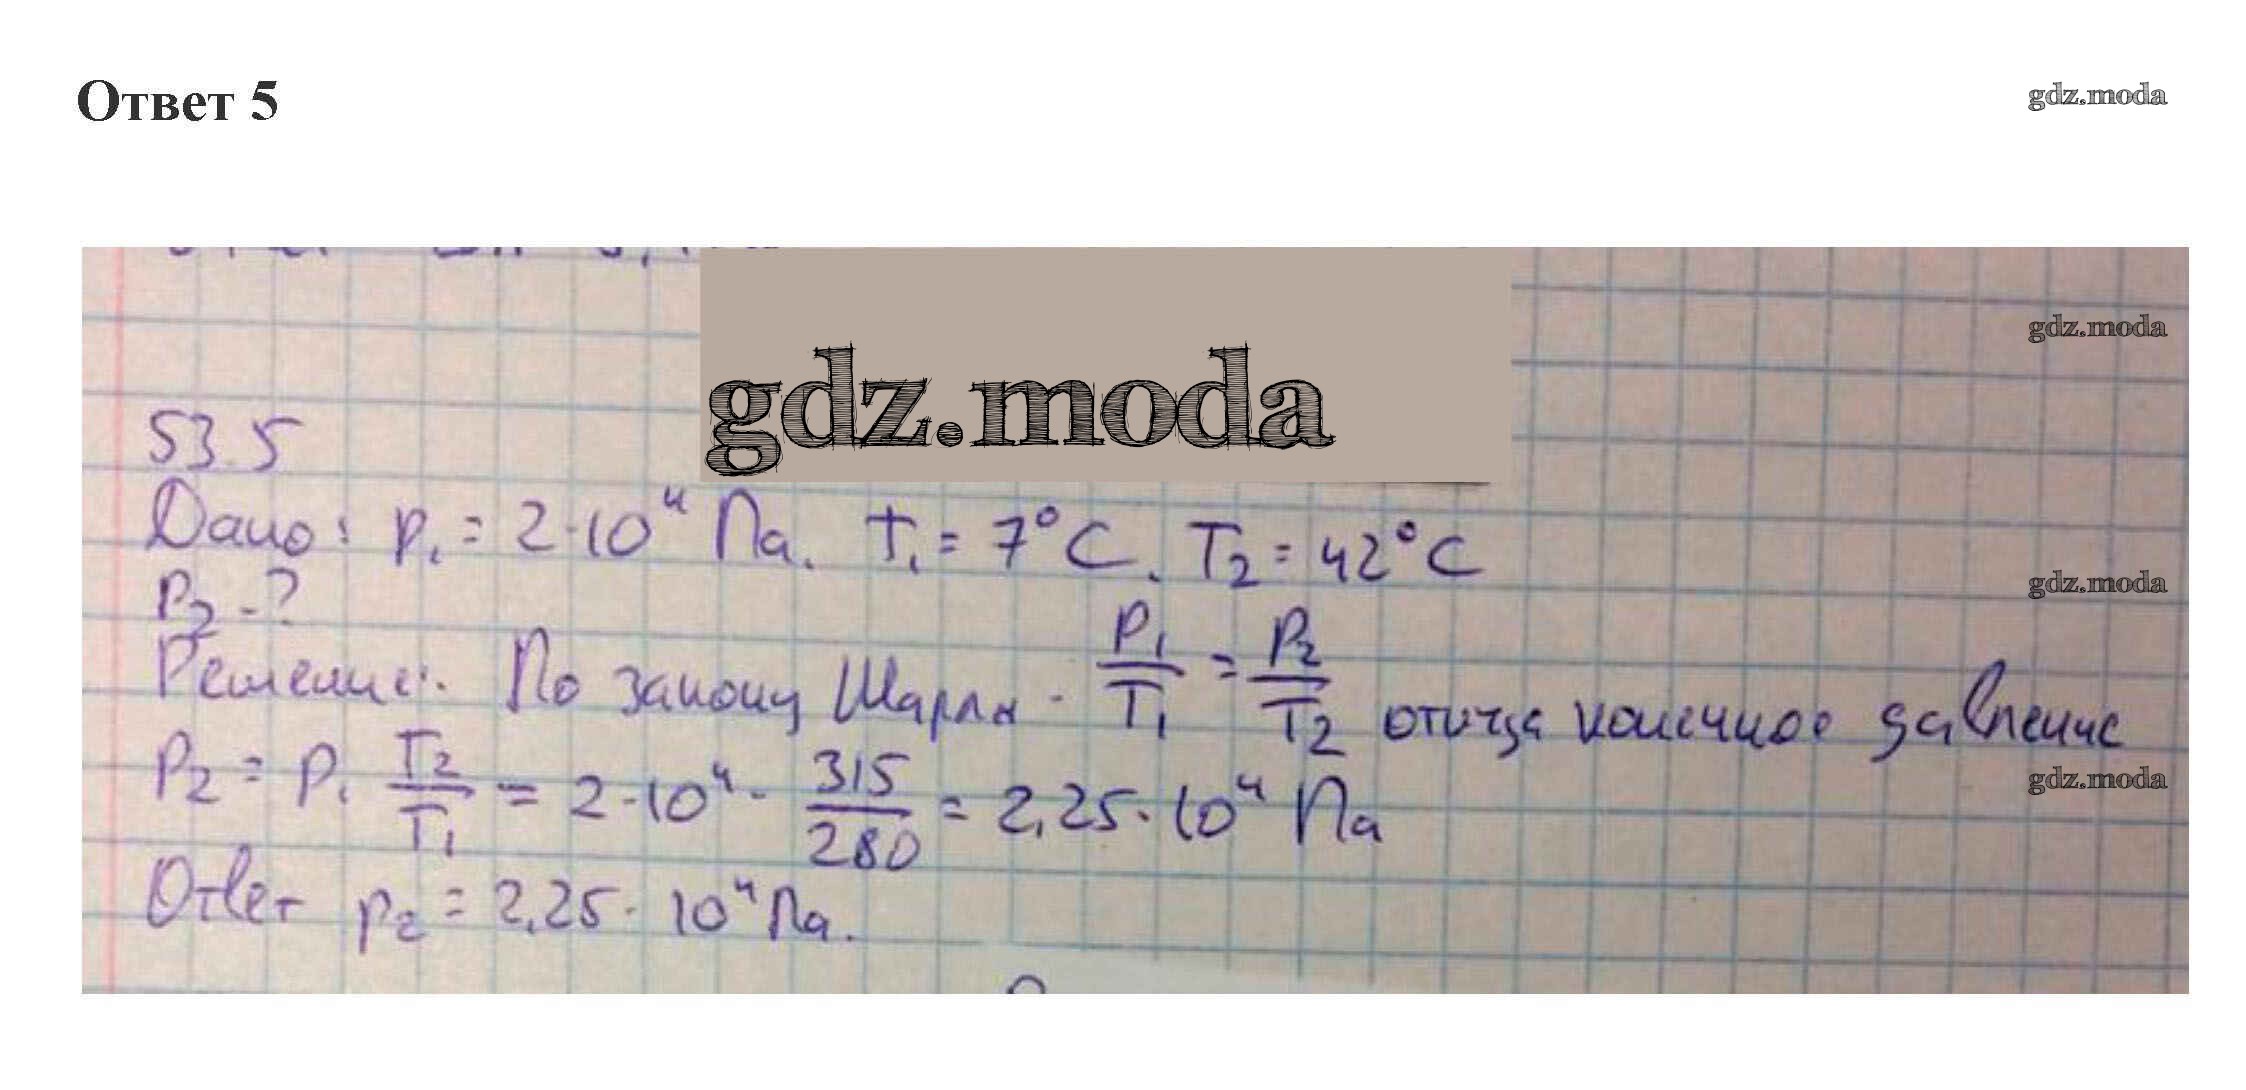 Ответ 5
gdz.moda
gdz.moda
gdz.moda
53.5
Дано: p₁ = 2·10⁴ Па. T₁ = 7°C. T₂ = 42°C
P₂ - ?
gdz.moda
Решение: По закону Шарля - P₁/T₁ = P₂/T₂ отсюда конечное давление
P₂ = P₁ T₂/T₁ = 2·10⁴ · 315/280 = 2,25·10⁴ Па
gdz.moda
Ответ p₂ = 2,25·10⁴ Па.